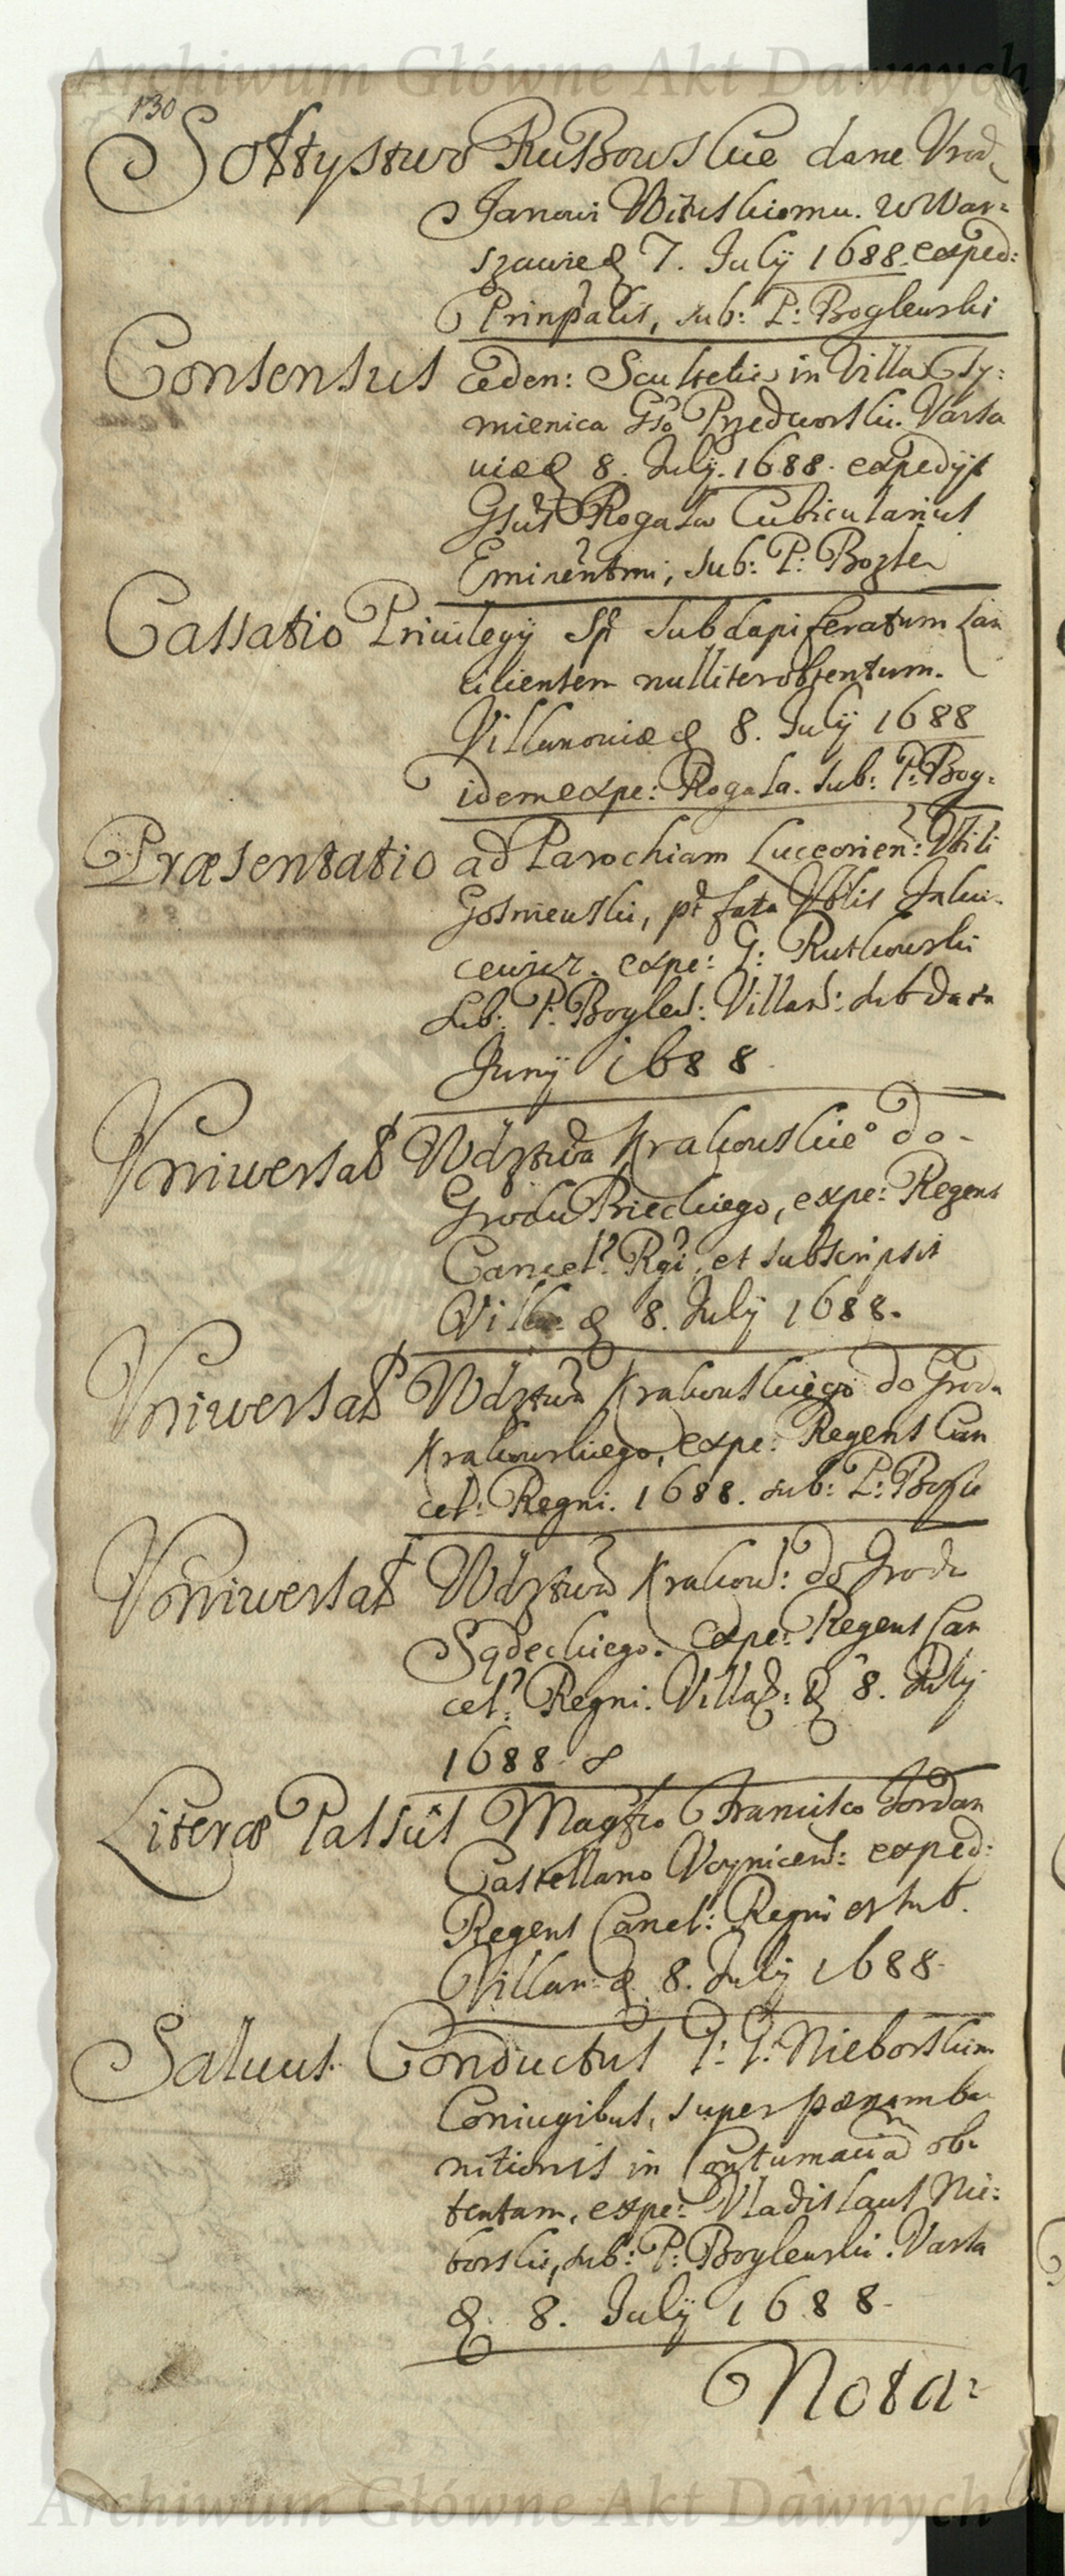 Archiwum Główne Akt Dawnych
130
Sołtystwo Russowskie dane Urod:
Janowi Wituskiemu. w War=
szawie d 7. July 1688. exped:
Prinpalis, sub: P: Boglewski
Consensus Ceden: Scultetiæ in Villa Ty=
mienica Gso Przedworski. Varsa
viæ d 8. July. 1688. expedijt
Gsus Rogala Cubicularius
Eminentmi, sub: P: Bogle
Cassatio Privilegÿ Sp Subdapiferatum Lan
ciciensem nulliter obtentum.
Villanoviæ d 8. July 1688
idem expe: Rogala. sub: P: Bog=
Præsentatio ad Parochiam Luceorien: Vbili
Gosniewski, pt fata Vblis
cewicz. expe: G: Rutkowski
sub: P: Boglew: Villan: sub data
Junÿ 1688
Vniwersał Wdztwa Krakowskieo do
Grodu Bieckiego, expe: Regens
Cancel: Rgi, et subscripsit
Villa: d 8. July 1688.
Vniwersał Wdztwa Krakowskiego do Grodu
Krakowskiego, expe: Regens Can
cel: Regni. 1688. sub: P: Bogle
Vniwersał Wdztwa Krakow: do Grodu
Sądeckiego. Expe: Regens Can
cel: Regni. Villa: d 8. July
1688
Literæ Passus Magfco Francisco Jordan
Castellano Voynicen: exped:
Regens Cancel: Regni et sub.
Villan: d. 8. July 1688
Salvus Conductus G: G: Nieborskim
Coniugibus, super pœnam ba
nitionis in Contumaciam ob=
tentam, expe: Vladislaus Nie=
borski, sub: P: Boglewski. Varsa
d. 8. July 1688
Nota:
Archiwum Główne Akt Dawnych